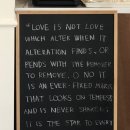 "LOVE IS NOT LOVE
WHICH ALTER WHEN IT
ALTERATION FINDS, OR
PENDS WITH THE REMOVER
TO REMOVE. O NO IT
IS AN EVER-FIXED MARK
THAT LOOKS ON TEMPESTS
AND IS NEVER SHAKEN
IT IS THE STAR TO EVERY